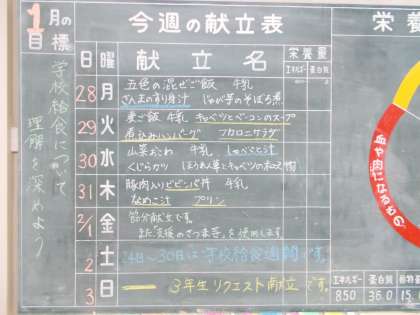 1月の目標
学校給食について
理解を深めよう
今週の献立表
日 曜 献立名 栄養量
エネルギー 蛋白質
28 月 五色の混ぜご飯 牛乳
さんまのすり身汁 じゃが芋のそぼろ煮
29 火 麦ご飯 牛乳 キャベツとベーコンのスープ
煮込みハンバーグ マカロニサラダ
30 水 山菜おこわ 牛乳
くじらカツ ほうれん草とキャベツの和え物
31 木 豚肉入りビビンバ丼 牛乳
なめこ汁 プリン
2/1 金 節分献立です。
また「支援のさつま芋」を使用します。
2 土 24日~30日は学校給食週間です。
3 日 3年生リクエスト献立です。
栄養
血や肉になるもの
エネルギー 蛋白質
850 36.0 15.